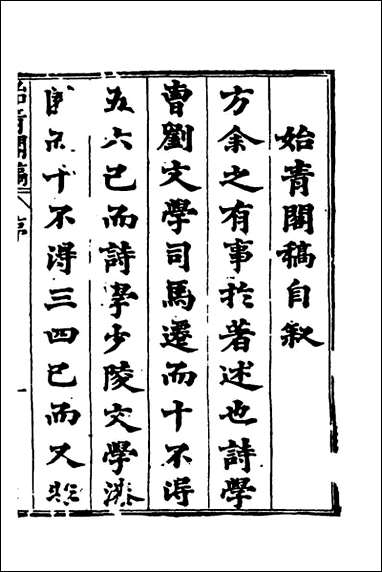 始青閣稿自叙
方余之有事於著述也詩學
曹劉文學司馬遷而十不得
五六已而詩學少陵文學
十不得三四已而又
青閣稿 序